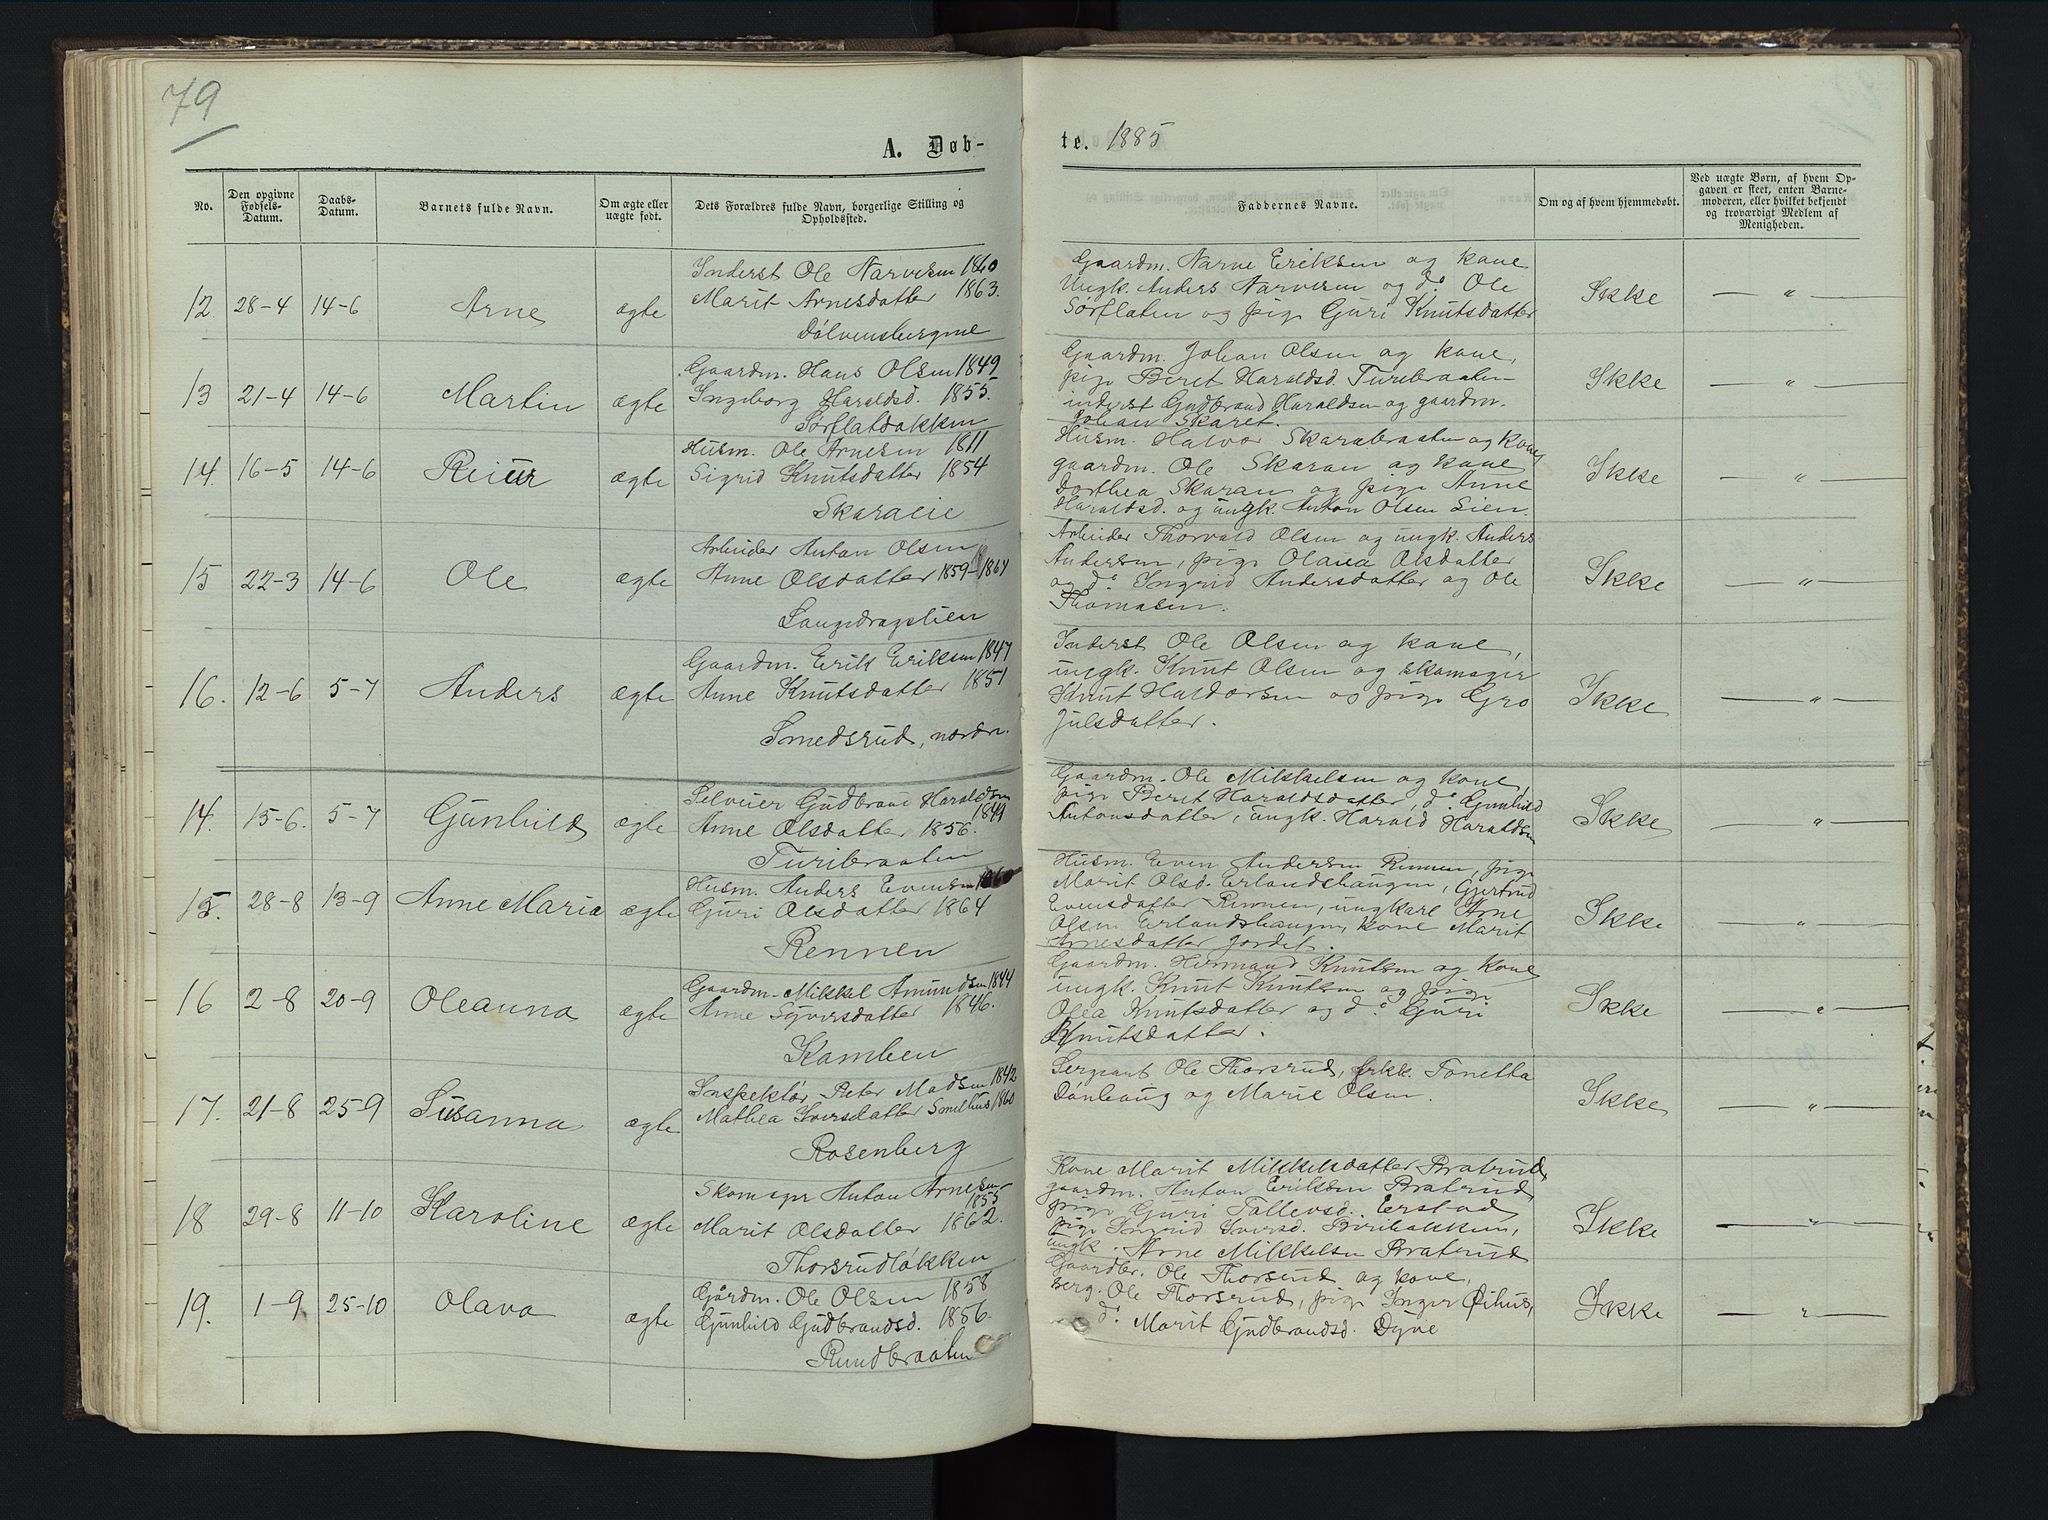 79
A. Døb-
te. 1885
No.
Den opgivne Fødsels-Datum.
Daabs-Datum.
Barnets fulde Navn.
Om ægte eller uægte født.
Dets Forældres fulde Navn, borgerlige Stilling og Opholdssted.
Faddernes Navne.
Om og af hvem hjemmedøbt.
Ved uægte Børn, af hvem Opgaven er skeet, enten Barnemoderen, eller hvilket bekjendt og troværdigt Medlem af Menigheden.
12. 28-4 14-6 Arne ægte
Inderst Ole Narvesen 1860
Marit Arnesdatter 1863.
Dølvensbergene
Gaardm. Narve Eriksen og kone
Ungk. Anders Narvesen og do Ole
Sørflaten og pige Guri Knutsdatter
Ikke — " —
13 21-4 14-6 Martin ægte
Gaardm. Hans Olsen 1849
Ingeborg Haraldsd. 1855.
Sørflatbakken
Gaardm. Johan Olsen og kone,
pige Beret Haraldsd. Turibraaten
inderst Gudbrand Haraldsen og gaardm.
Johan Skaret.
Ikke — " —
14. 16-5 14-6 Reier ægte
Husm. Ole Arnesen 1811
Sigrid Knutsdatter 1854
Skaraeie
Husm. Halvor Skarabraaten og kone
gaardm. Ole Skaran og kone
Dorthea Skaran og pige Anne
Haraldsd. og ungk. Anton Olsen Lien.
Ikke — " —
15 22-3 14-6 Ole ægte
Arbeider Anton Olsen
Anne Olsdatter 1859-1864
Langedragslien
Arbeider Thorvald Olsen og ungk. Anders
Andersen, pige Olava Olsdatter
og do Ingrid Andersdatter og Ole
Thomasen.
Ikke — " —
16. 12-6 5-7 Anders ægte
Gaardm. Erik Eriksen 1847
Anne Knutsdatter 1851
Smedsrud, nordre.
Inderst Ole Olsen og kone,
ungk. Knut Olsen og skomager
Knut Haldorsen og pige Gro
Julsdatter.
Ikke — " —
14. 15-6. 5-7 Gunhild ægte
Selveier Gudbrand Haraldsen
1849
Anne Olsdatter 1856.
Turibraaten
Gaardm. Ole Mikkelsen og kone,
pige Beret Haraldsdatter, do Gunhild
Antonsdatter, ungk. Harald Haraldsen
Ikke — " —
15. 28-8 13-9 Anne Maria ægte
Husm. Anders Evensen
Guri Olsdatter 1864
Rennen
Husm. Even Andersen Rennen, pige
Marit Olsd. Erlandshaugen, Gjertrud
Evensdatter Rennen, ungkarl Arne
Olsen Erlandshaugen, kone Marit
Arnesdatter Jordet.
Ikke — " —
16 2-8 20-9 Oleanna ægte
Gaardm. Mikkel Amundsen 1844
Anne Syversdatter 1846.
Kamben
Gaardm. Hermand Knutsen og kone
ungk. Knut Knutsen og pige
Olea Knutsdatter og do Guri
Knutsdatter.
Ikke — " —
17. 21-8 25-9 Susanna ægte
Inspektør Peter Madsen 1842
Mathea Iversdatter Smelhus 1860
Rosenberg
Sergeant Ole Thorsrud, frkk. Tonetta
Dønhaug og Marie Olsen.
Ikke — " —
18 29-8 11-10 Karoline ægte
Skomager Anton Arnesen
1855
Marit Olsdatter 1862.
Thorsrudløkken
Kone Marit Mikkelsdatter Bratrud
gaardm. Anton Eriksen Bratrud,
pige Guri Tollevsd. Erstad
pige Ingrid Iversd. Biribakken,
ungk. Arne Mikkelsen Bratrud
Ikke — " —
19. 1-9 25-10 Olava ægte
Gårdm. Ole Olsen 1858
Gunhild Gudbrandsd. 1856.
Rundbraaten
Gaardbr. Ole Thorsrud og kone,
Berg. Ole Thorsrud, pige Inger Øihus,
do Marit Gudbrandsd. Dyne
Ikke — " —